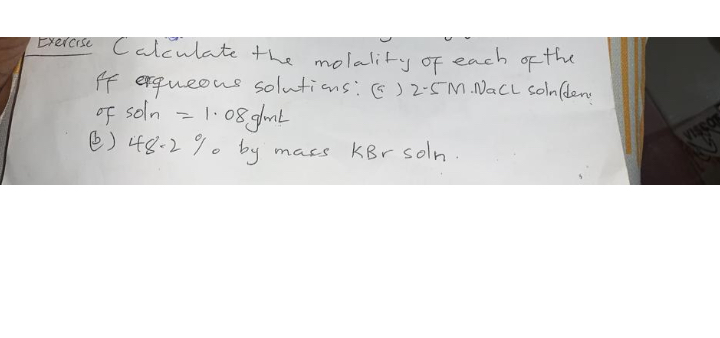 Exercise Calculate the molality of each of the
ff erqueous solutions: (a) 2.5M NaCL soln (den
of soln = 1.08 g/mL
(b) 48.2 % by mass KBr soln.